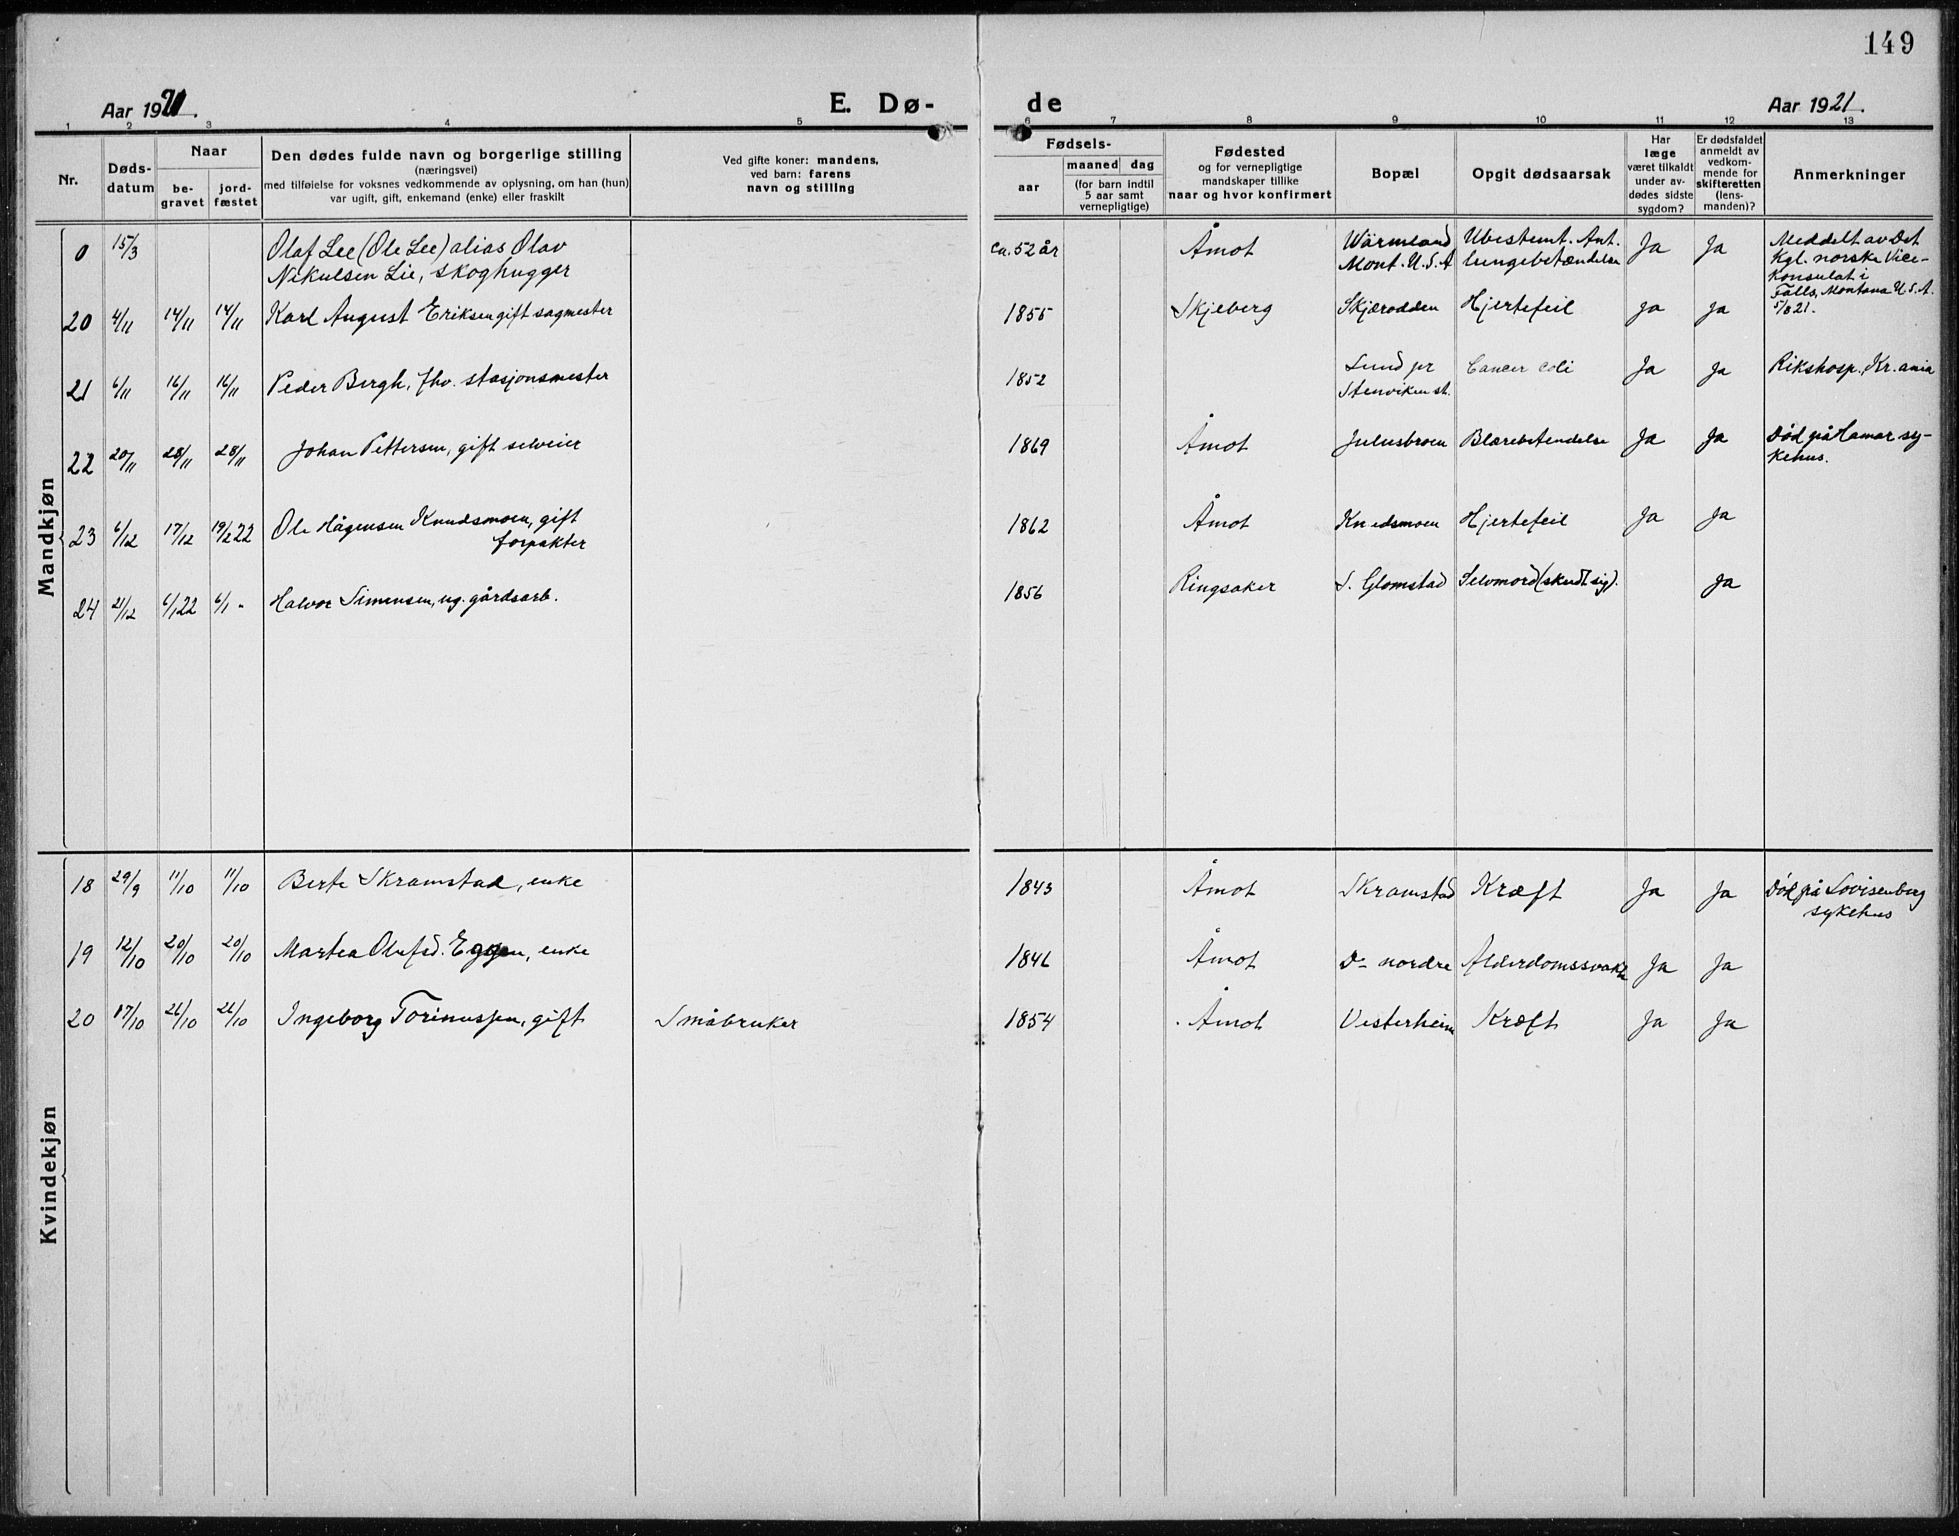 149
Aar 1921.
E. Dø-
de
Aar 1921.
1 2 3 4 5 6 7 8 9 10 11 12 13
Nr.
Døds-
datum
Naar
be-
gravet
jord-
fæstet
Den dødes fulde navn og borgerlige stilling
(næringsvei)
med tilføielse for voksnes vedkommende av oplysning, om han (hun)
var ugift, gift, enkemand (enke) eller fraskilt
Ved gifte koner: mandens,
ved barn: farens
navn og stilling
Fødsels-
aar
maaned dag
(for barn indtil
5 aar samt
vernepligtige)
Fødested
og for vernepligtige
mandskaper tillike
naar og hvor konfirmert
Bopæl
Opgit dødsaarsak
Har
læge
været tilkaldt
under av-
dødes sidste
sygdom?
Er dødsfaldet
anmeldt av
vedkom-
mende for
skifteretten
(lens-
manden)?
Anmerkninger
Mandkjøn
0 15/3 Olaf Lee (Ole Lee) alias Olav ca. 52 år Åmot Wärmland Ubestemt. Ant. Ja Ja Meddelt av Det
Nikulsen Lie, skoghugger Mont. U.S.A lungebetændelse Kgl. norske Vice-
Konsulat i
Falls, Montana U.S.A.
5/8 21.
20 4/11 14/11 14/11 Karl August Eriksen gift sagmester 1855 Skjeberg Skjærodden Hjertefeil Ja Ja
21 6/11 16/11 16/11 Peder Bergh, fhv. stasjonsmester 1852 Lund pr Cancer coli Ja Ja Rikshosp., Kr.ania
Stenviken st.
22 20/11 28/11 28/11 Johan Pettersen, gift selveier 1869 Åmot Julusbroen Blærebetendelse Ja Ja Død på Hamar sy-
kehus.
23 6/12 17/12 19/2 22 Ole Hågensen Knudsmoen, gift 1862 Åmot Knudsmoen Hjertefeil Ja Ja
forpakter
24 21/12 6/1 22 6/1 - Halvor Simensen, ug. gårdsarb. 1856 Ringsaker S. Glomstad Selvmord (skudt sig). Ja
Kvindekjøn
18 29/9 11/10 11/10 Berte Skramstad, enke 1843 Åmot Skramstad Kræft Ja Ja Død på Lovisenberg
sykehus
19 12/10 20/10 20/10 Martea Olufsd. Eggen, enke 1846 Åmot D- nordre Alderdomssvakh Ja Ja
20 17/10 26/10 26/10 Ingeborg Torinussen, gift Småbruker 1854 Åmot Vesterheim Kræft Ja Ja